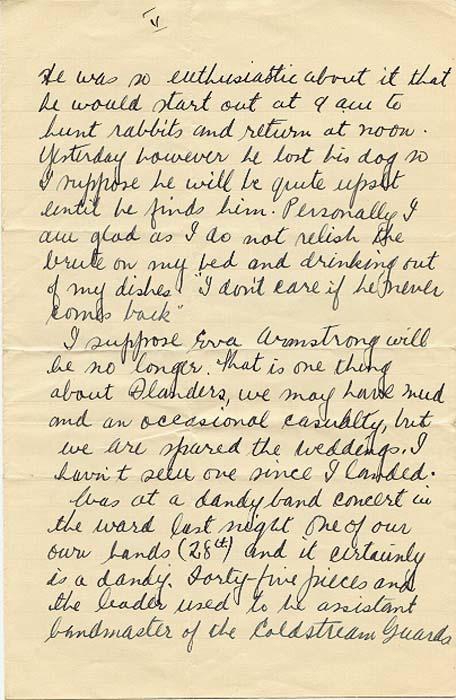 V
He was so enthusiastic about it that
he would start out at 9 am to
hunt rabbits and return at noon.
Yesterday however he lost his dog so
I suppose he will be quite upset
until he finds him. Personally I
am glad as I do not relish the
brute on my bed and drinking out
of my dishes "I don't care if he never
comes back"
I suppose Erva Armstrong will
be no longer. That is one thing
about Flanders, we may have mud
and an occasional casualty, but
we are spared the weddings. I
havn't seen one since I landed.
Was at a dandy band concert in
the ward last night one of our
own bands (28th) and it certainly
is a dandy. Forty-five pieces and
the leader used to be assistant
bandmaster of the Coldstream Guards